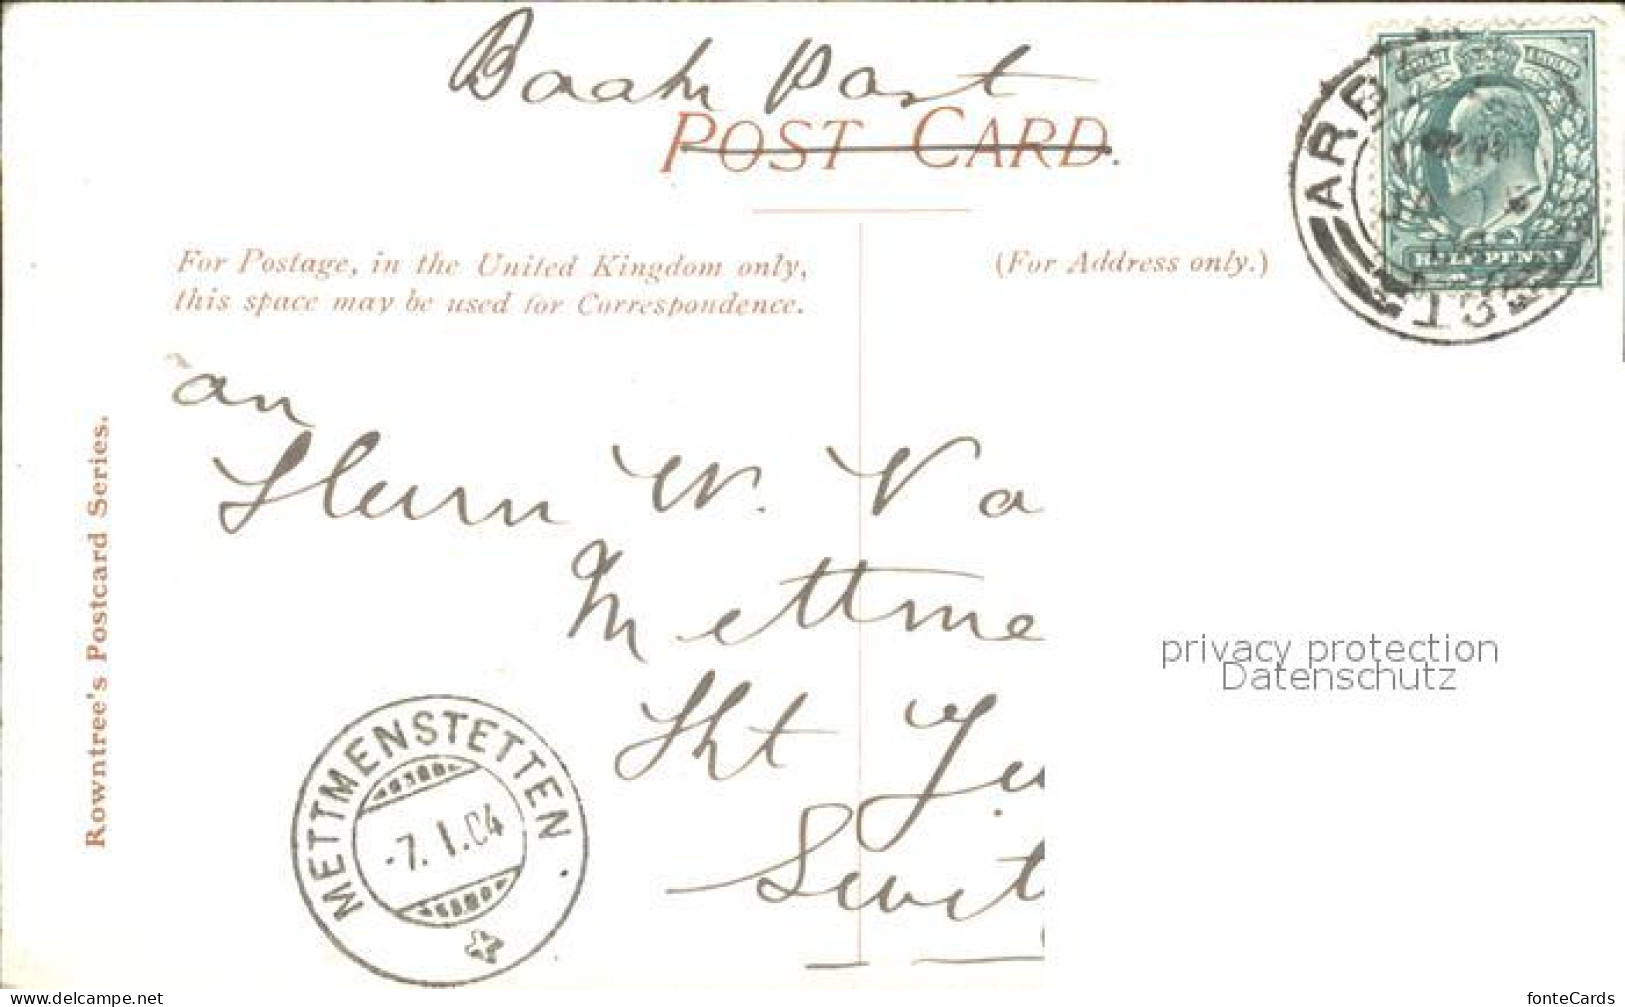 Book Post
POST CARD.
For Postage, in the United Kingdom only,
this space may be used for Correspondence.
(For Address only.)
HALF PENNY
an
Herrn W. Va
Mettme
Kt
Swit
Rowntree's Postcard Series.
METTMENSTETTEN
-7.I.04
privacy protection
Datenschutz
www.delcampe.net
fonteCards